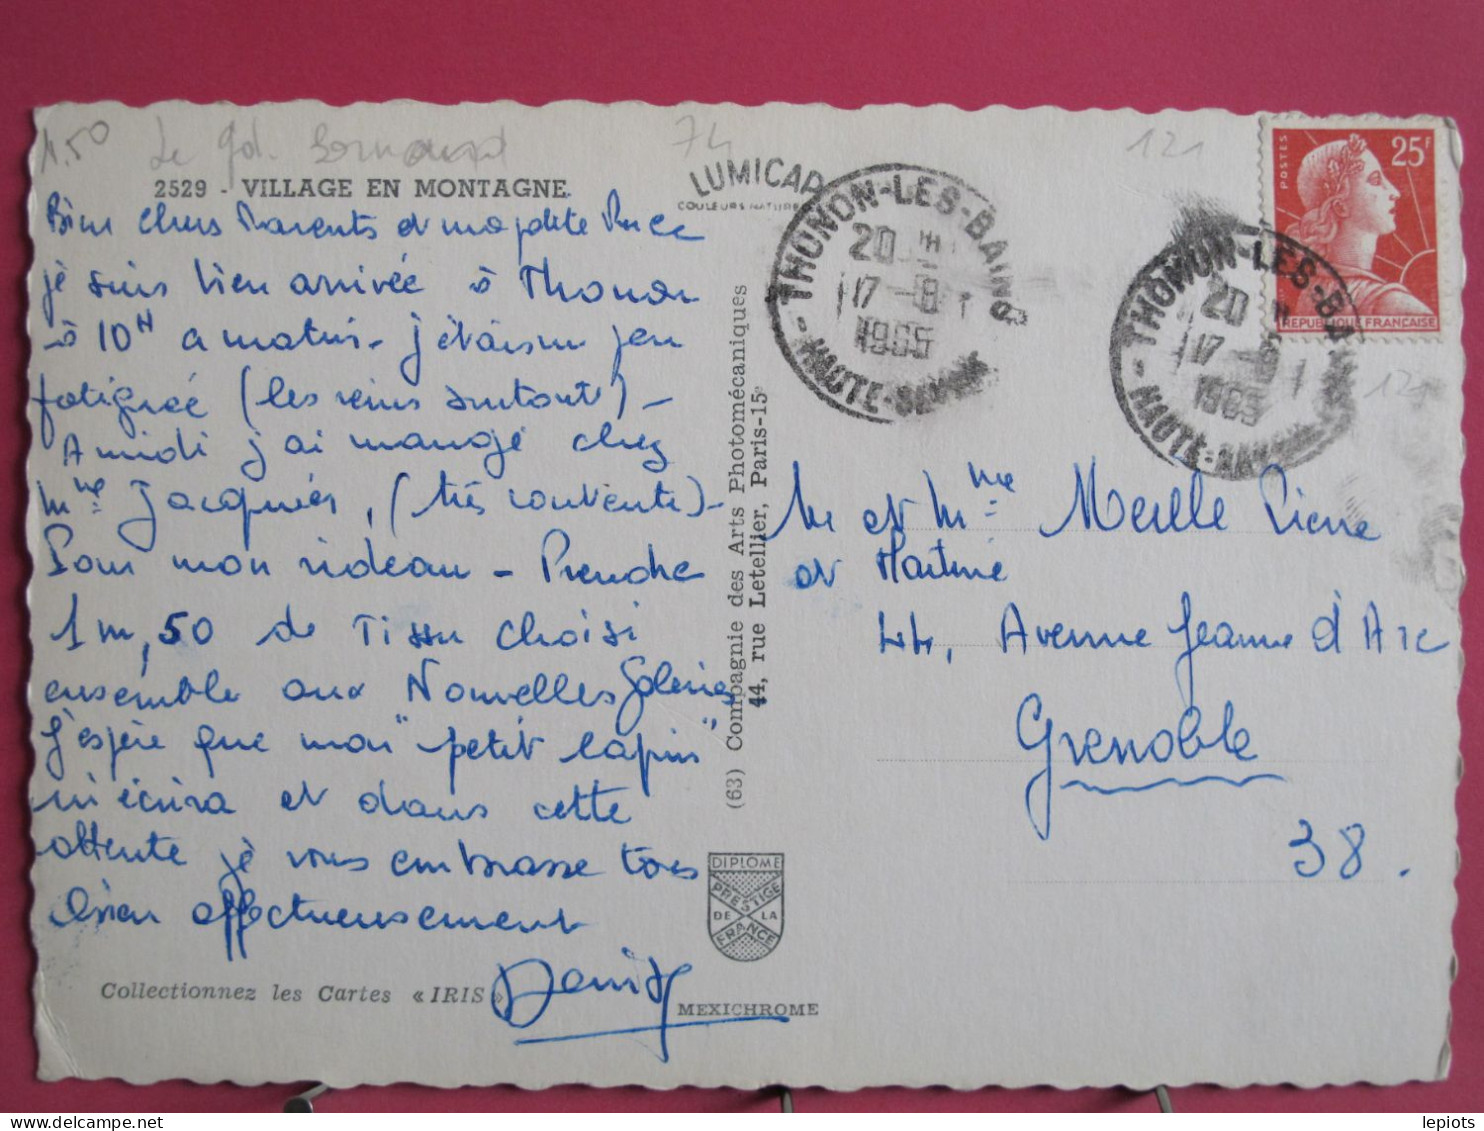 1.50 Le Gd. Bornand 74 121
2529 - VILLAGE EN MONTAGNE
LUMICAP
COULEURS NATURELLES
Bien Chers Parents et ma petite Puce
je suis bien arrivée à Thonon
à 10H ce matin - j'étais un peu
fatiguée (les reins surtout) -
A midi j'ai mangé chez
Mme Jacquier, (très contente) -
Pour mon rideau - Prendre
1m,50 de Tissu choisi
ensemble aux Nouvelles Galeries
J'espère que mon "petit lapin"
m'écrira et dans cette
attente je vous embrasse tous
bien affectueusement
Collectionnez les Cartes «IRIS»
(63) Compagnie des Arts Photomécaniques
44, rue Letellier, Paris-15e
DIPLOME
PRESTIGE
DE LA
FRANCE
MEXICHROME
THONON-LES-BAINS
20H
17 -8
1965
HAUTE-SAVOIE
THONON-LES-BAINS
20H
17 -8
1965
HAUTE-SAVOIE
POSTES
25F
REPUBLIQUE FRANCAISE
121
Mr et Mme Merlle Pierre
et Martine
44, Avenue Jeanne d'Arc
Grenoble
38.
lepiots